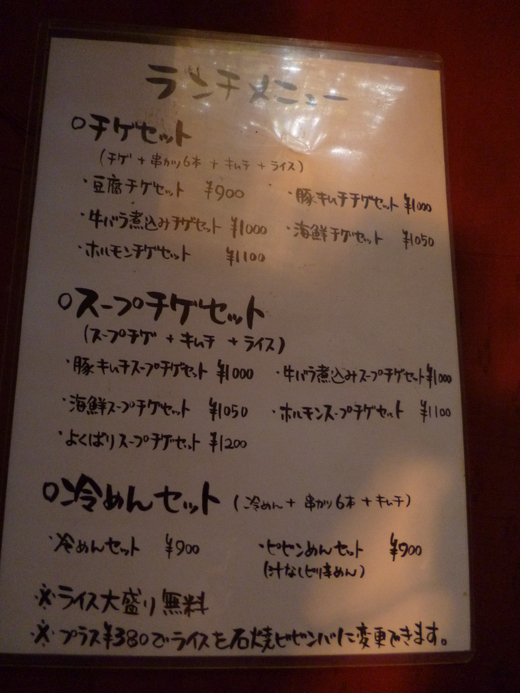 ランチメニュー
○チゲセット
(チゲ + 串かつ6本 + キムチ + ライス)
・豆腐チゲセット ¥900 ・豚キムチチゲセット ¥1000
・牛バラ煮込みチゲセット ¥1000 ・海鮮チゲセット ¥1050
・ホルモンチゲセット ¥1100
○スープチゲセット
(スープチゲ + キムチ + ライス)
・豚キムチスープチゲセット ¥1000 ・牛バラ煮込みスープチゲセット ¥1000
・海鮮スープチゲセット ¥1050 ・ホルモンスープチゲセット ¥1100
・よくばりスープチゲセット ¥1200
○冷めんセット (冷めん + 串かつ6本 + キムチ)
・冷めんセット ¥900 ・ピビンめんセット ¥900
(汁なしピリ辛めん)
※ライス大盛り無料
※プラス¥380でライスを石焼ビビンバに変更できます。